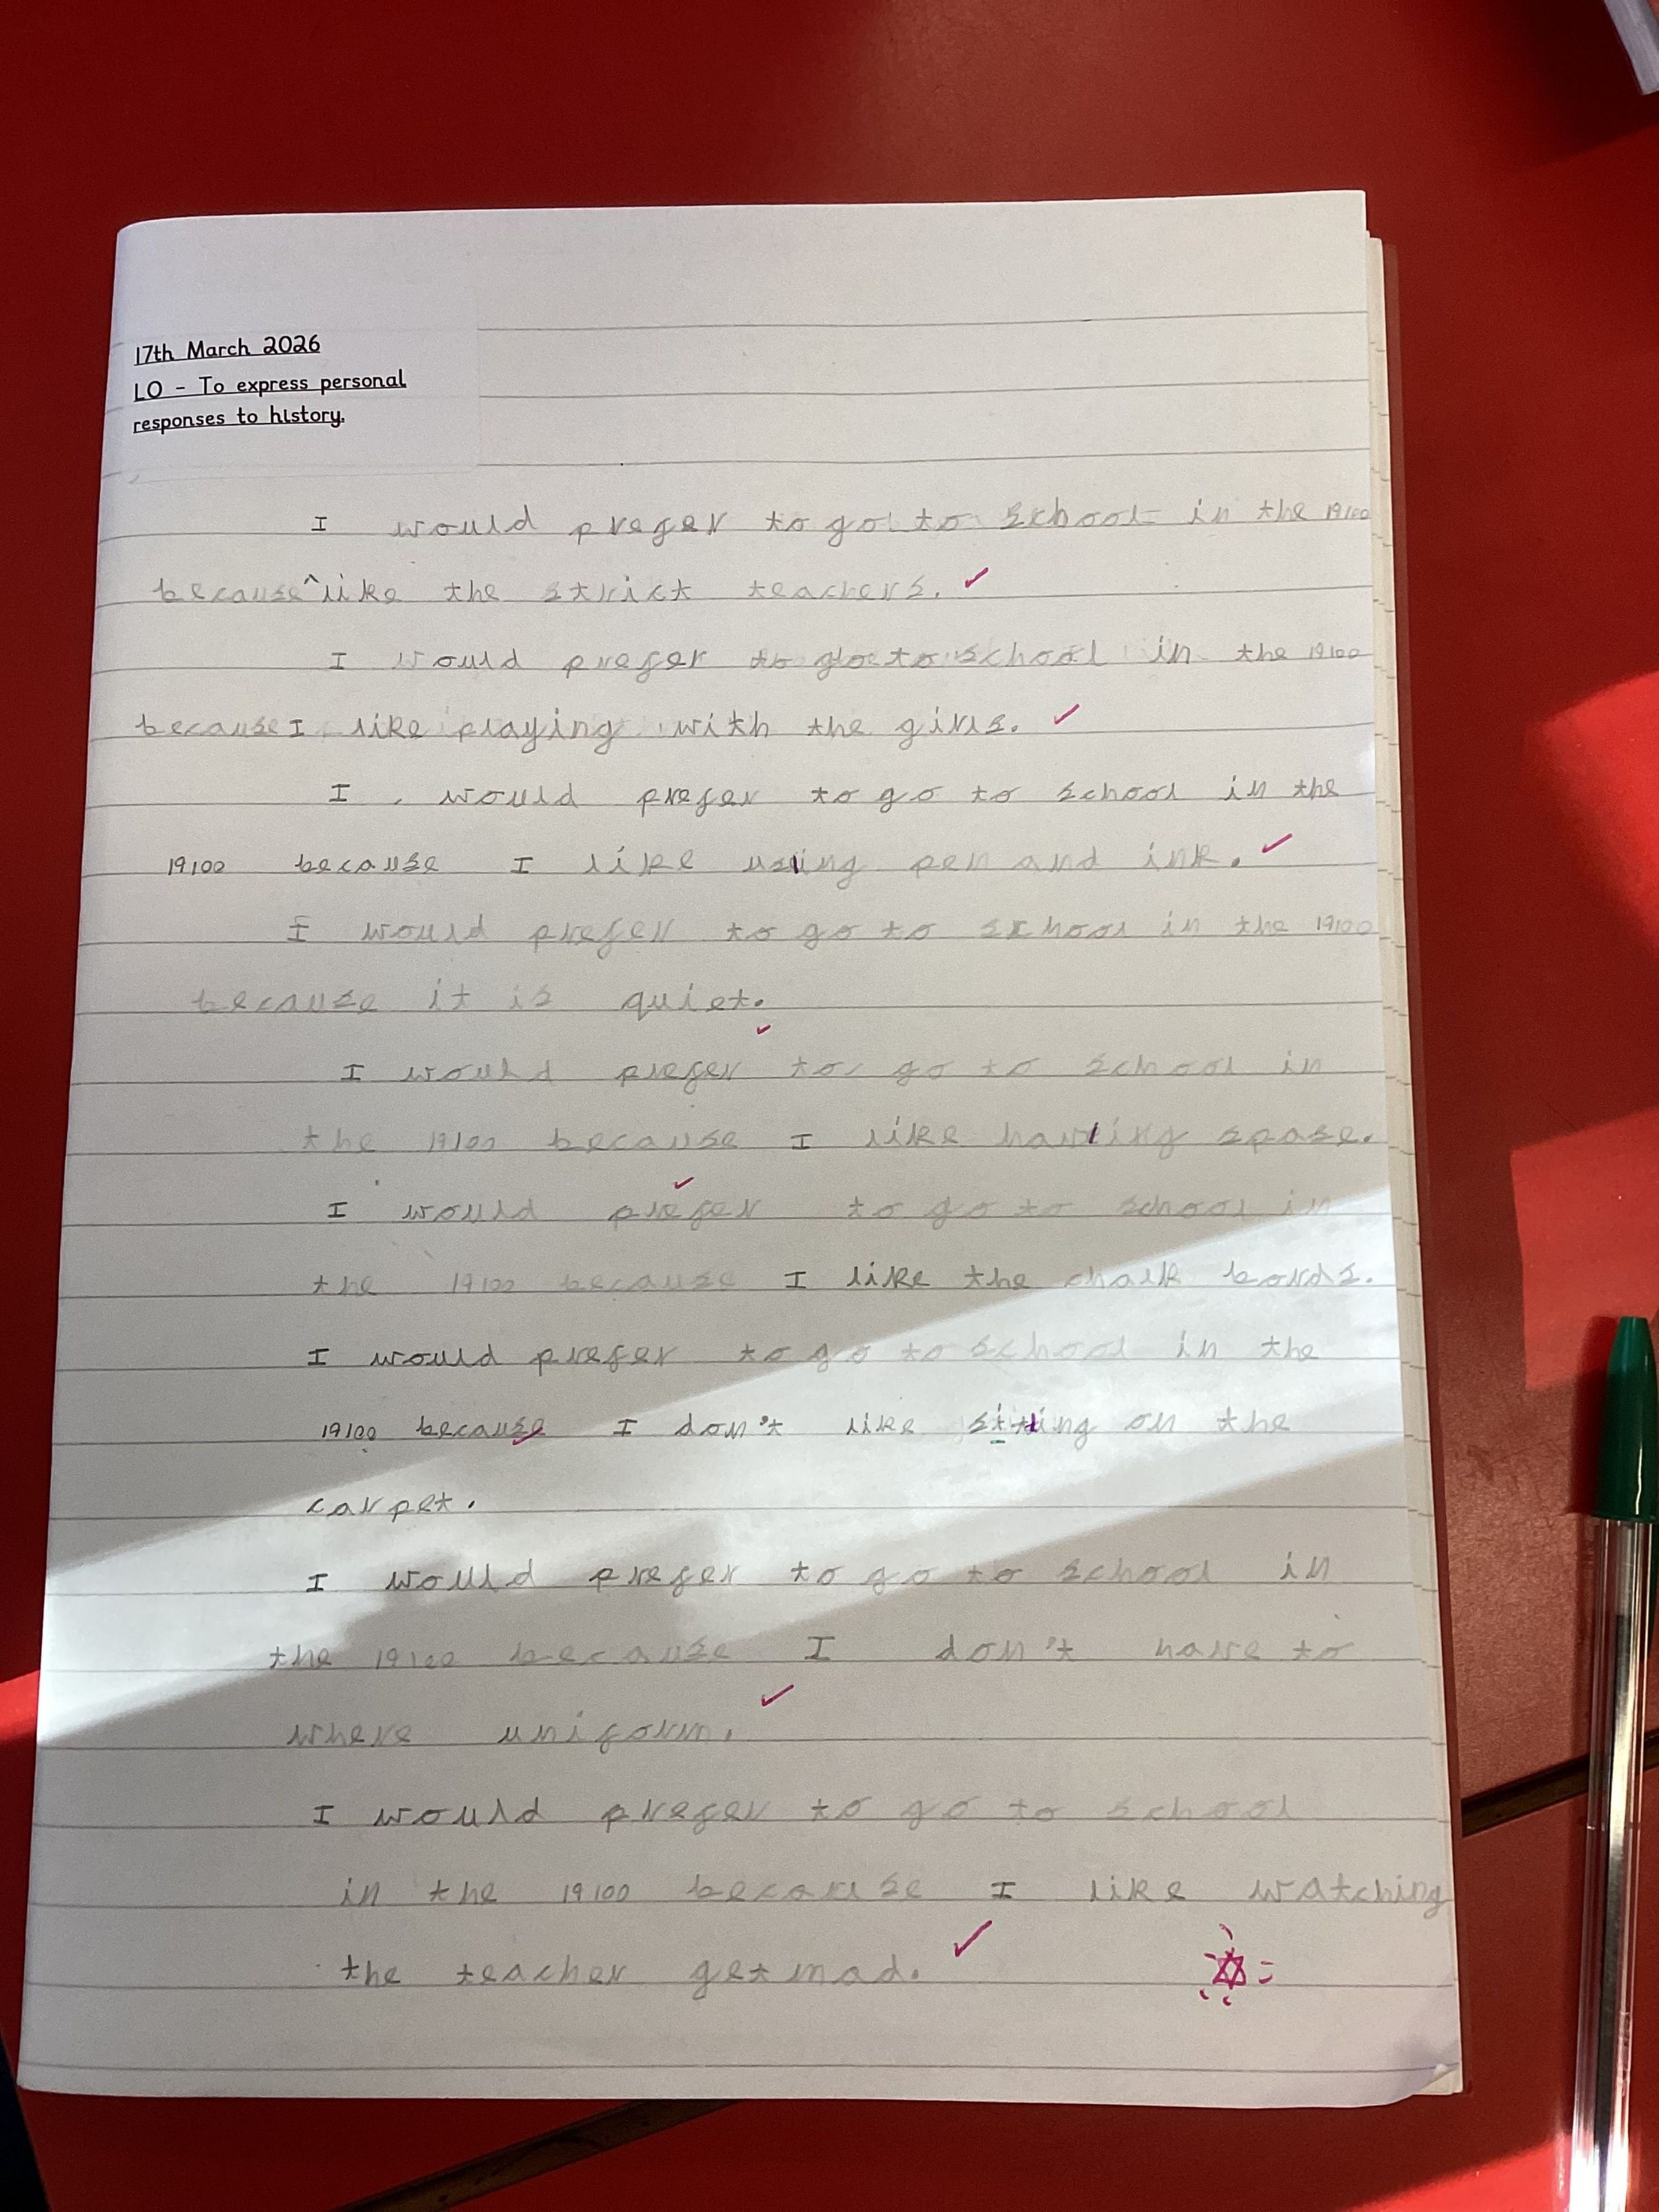 17th March 2026
LO - To express personal
responses to history.
I would prefer to go to school in the 19100
because ^ like the strict teachers.
I would prefer to go to school in the 19100
because I like playing with the girls.
I would prefer to go to school in the
19100 because I like using pen and ink.
I would prefer to go to school in the 19100
because it is quiet.
I would prefer to go to school in
the 19100 because I like having spase.
I would prefer to go to school in
the 19100 because I like the chalk bords.
I would prefer to go to school in the
19100 because I don't like sitting on the
carpet.
I would prefer to go to school in
the 19100 because I don't have to
where uniform.
I would prefer to go to school
in the 19100 because I like watching
the teacher get mad.